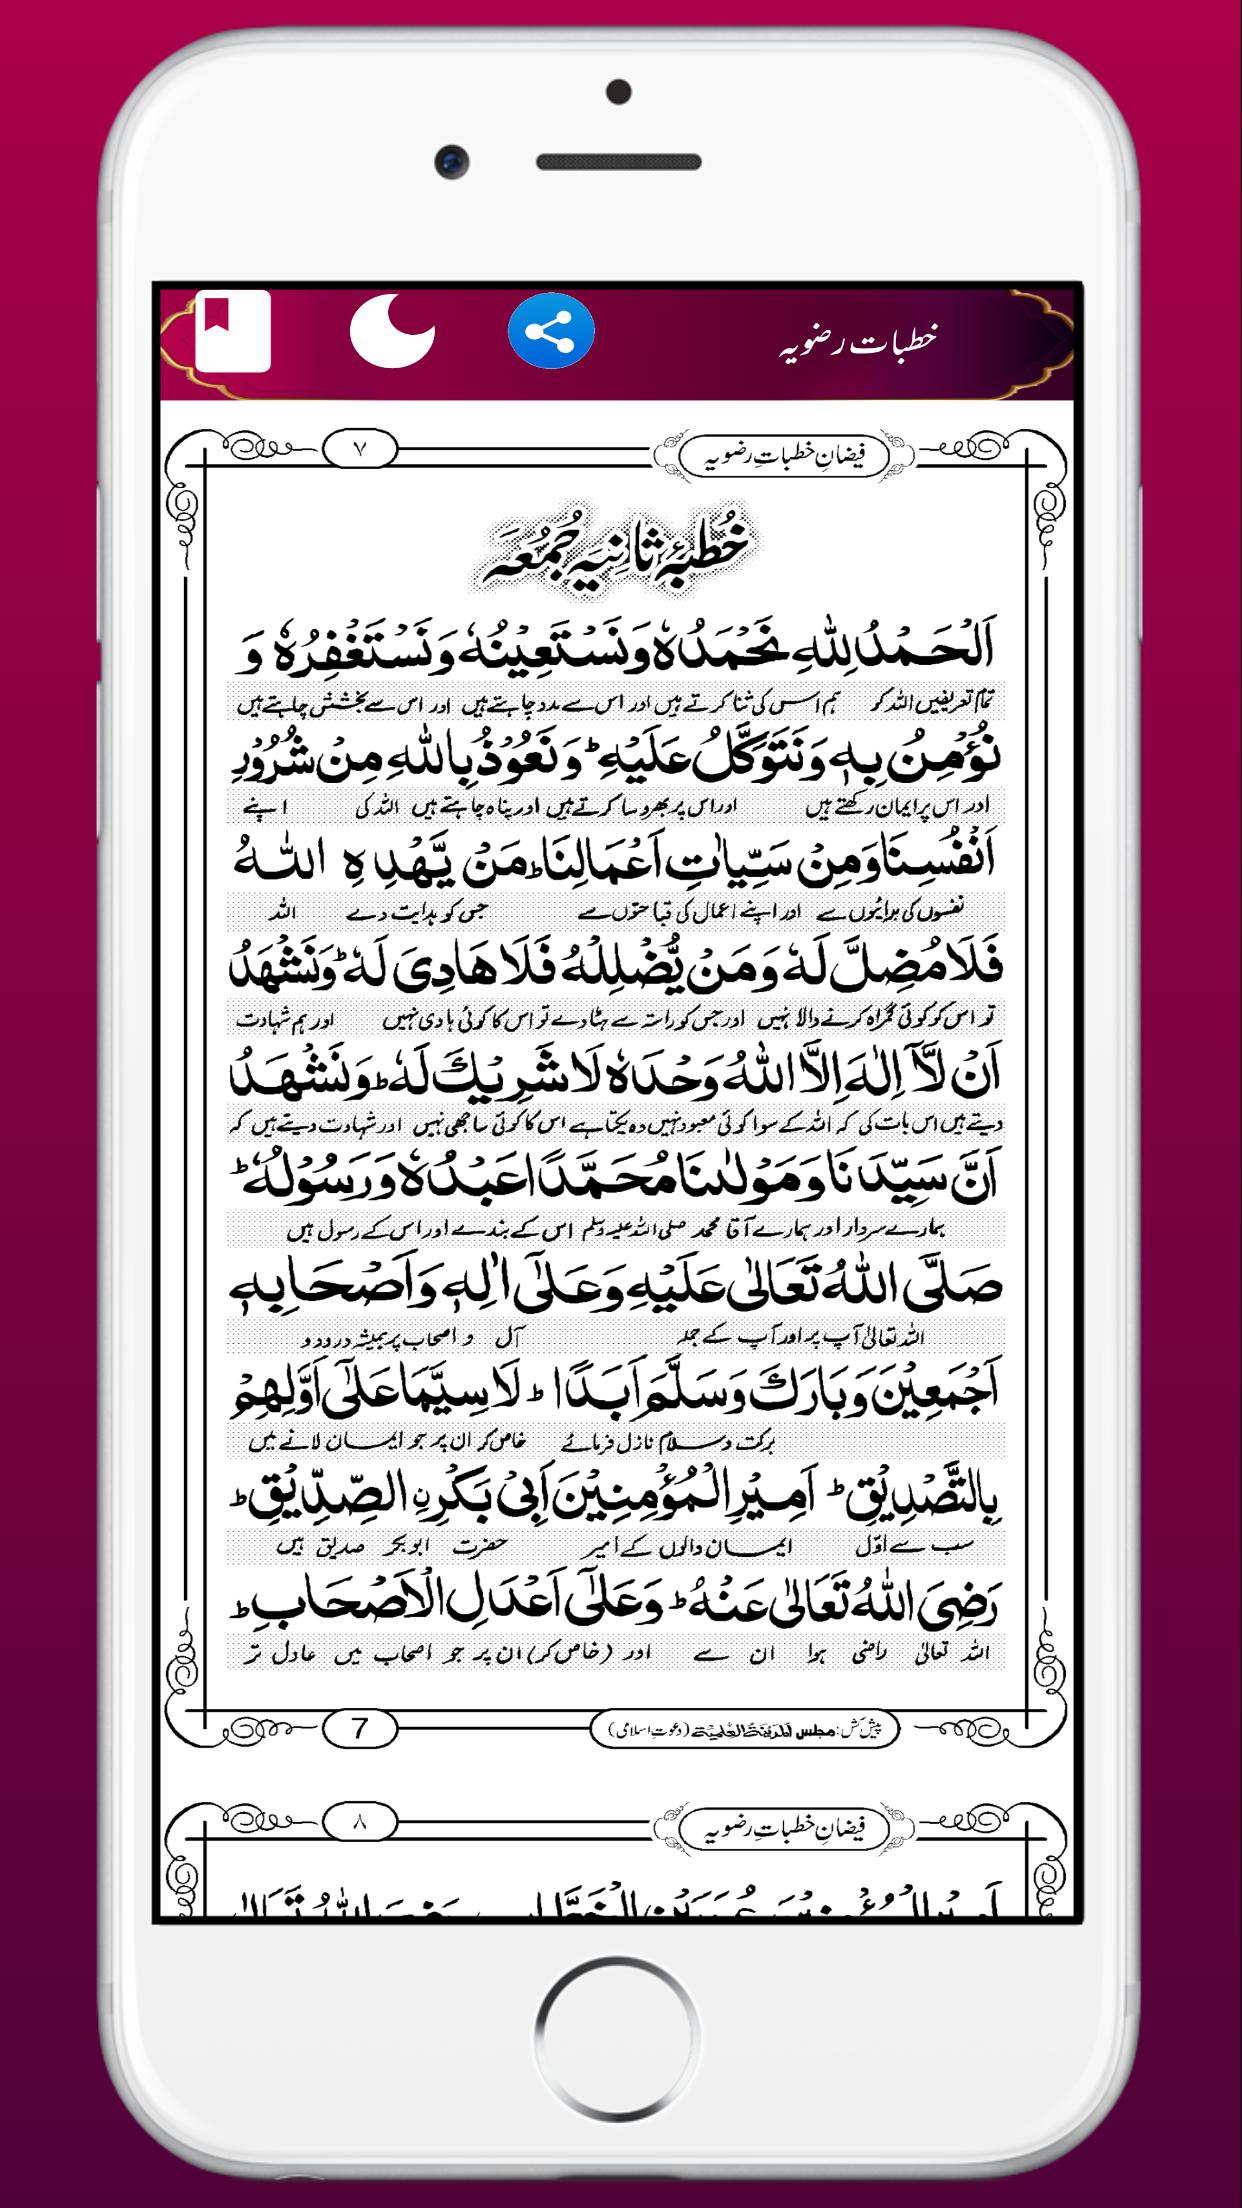 خطبات رضویہ
فیضانِ خطباتِ رضویہ
٧
خُطبۂ ثانِیَہ جُمُعَہ
اَلْحَمْدُ لِلّٰهِ نَحْمَدُهٗ وَنَسْتَعِيْنُهٗ وَنَسْتَغْفِرُهٗ وَ
تمام تعریفیں اللہ کو ہم اس کی ثنا کرتے ہیں اور اس سے مدد چاہتے ہیں اور اس سے بخشش چاہتے ہیں
نُؤْمِنُ بِهٖ وَنَتَوَكَّلُ عَلَيْهِ ؕ وَنَعُوْذُ بِاللّٰهِ مِنْ شُرُوْرِ
اور اس پر ایمان رکھتے ہیں اور اس پر بھروسا کرتے ہیں اور پناہ چاہتے ہیں اللہ کی اپنے
اَنْفُسِنَا وَمِنْ سَيِّاٰتِ اَعْمَالِنَا ؕ مَنْ يَّهْدِهِ اللّٰهُ
نفسوں کی برائیوں سے اور اپنے اعمال کی قباحتوں سے جس کو ہدایت دے اللہ
فَلَا مُضِلَّ لَهٗ وَمَنْ يُّضْلِلْهُ فَلَا هَادِىَ لَهٗ ؕ وَنَشْهَدُ
تو اس کو کوئی گمراہ کرنے والا نہیں اور جس کو راستہ سے ہٹا دے تو اس کا کوئی ہادی نہیں اور ہم شہادت
اَنْ لَّاۤ اِلٰهَ اِلَّا اللّٰهُ وَحْدَهٗ لَا شَرِيْكَ لَهٗ ؕ وَنَشْهَدُ
دیتے ہیں اس بات کی کہ اللہ کے سوا کوئی معبود نہیں وہ یکتا ہے اس کا کوئی ساجھی نہیں اور شہادت دیتے ہیں کہ
اَنَّ سَيِّدَنَا وَمَوْلٰىنَا مُحَمَّدًا عَبْدُهٗ وَرَسُوْلُهٗ ؕ
ہمارے سردار اور ہمارے آقا محمد صلی اللہ علیہ وسلم اس کے بندے اور اس کے رسول ہیں
صَلَّى اللّٰهُ تَعَالٰى عَلَيْهِ وَعَلٰٓى اٰلِهٖ وَاَصْحَابِهٖ
اللہ تعالیٰ آپ پر اور آپ کے جملہ آل و اصحاب پر ہمیشہ درود و
اَجْمَعِيْنَ وَبَارَكَ وَسَلَّمَ اَبَدًا ؕ لَاسِيَّمَا عَلٰٓى اَوَّلِهِمْ
برکت و سلام نازل فرمائے خاص کر ان پر جو ایمان لانے میں
بِالتَّصْدِيْقِ ؕ اَمِيْرِ الْمُؤْمِنِيْنَ اَبِىْ بَكْرِ نِ الصِّدِّيْقِ ؕ
سب سے اوّل ایمان والوں کے امیر حضرت ابوبکر صدیق ہیں
رَضِىَ اللّٰهُ تَعَالٰى عَنْهُ ؕ وَعَلٰٓى اَعْدَلِ الْاَصْحَابِ ؕ
اللہ تعالیٰ راضی ہوا ان سے اور (خاص کر) ان پر جو اصحاب میں عادل تر
پیش کش: مجلس المدینۃ العلمیۃ (دعوتِ اسلامی)
7
فیضانِ خطباتِ رضویہ
٨